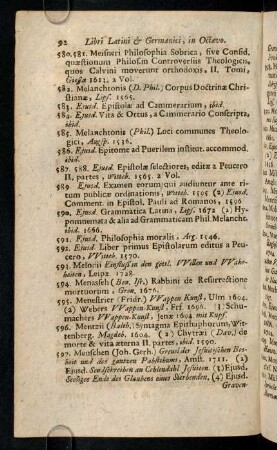 92 Libri Latini & Germanici, in Octavo.
580.581. Meisneri Philosophia Sobrica, sive Consid.
quæstionum Philosoph. in Controversiis Theologicis,
quos Calvini moverunt orthodoxis, II. Tomi,
Giessæ 1613. 2 Vol.
582. Melanchtonis (D. Phil.) Corpus Doctrinæ Chri-
stianæ, Lips. 1565.
583. Ejusd. Epistolæ ad Camerarium, ibid.
584. Ejusd. Vita & Ortus, a Camerario Conscripta,
ibid.
585. Melanchtonis (Phil.) Loci communes Theolo-
gici, Augsp. 1536.
586. Ejusd. Epitome ad Puerilem institut. accommod.
ibid.
587. 588. Ejusd. Epistolæ selectiores, editæ a Peucero
II. partes, Witteb. 1565. 2 Vol.
589 Ejusd. Examen eorum qui audiuntur ante ri-
tum publicæ ordinationis, Witteb. 1595 (2) Ejusd.
Comment. in Epistol. Pauli ad Romanos, 1596
590. Ejusd. Grammatica Latina, Lips. 1672 (2) Hy-
pomnemata & alia ad Grammaticam Phil. Melancht.
ibid. 1666.
591. Ejusd. Philosophia moralis, Arg. 1546.
592. Ejusd. Liber primus Epistolarum editus a Peu-
cero, Witteb. 1570.
593. Melorii Einfluß in den göttl. Willen und Wahr-
heiten, Leipz. 1728.
594. Menasseh (Ben, Isr.) Rabbini de Resurrectione
mortuorum, Gron. 1676.
595. Menestrier (Fridr.) Wappen-Kunst, Ulm 1694.
(2) Webers Wappen-Kunst, Frf. 1696. Schu-
machers Wappen-Kunst, Jenæ 1694 mit Kupf.
596. Mentzii (Balth.) Syntagma Epithaphiorum, Wit-
tenberg. Magdeb. 1604. (2) Chytræi (Dav.) de
morte & vita æterna II. partes, ibid. 1590.
597. Meuschen (Joh. Gerh.) Greuel der Jesuitischen Bos-
heit und des gantzen Pabstthums, Amst. 1711. (2)
Ejusd. Sendschreiben an Cehlendihl Jesuiten. (3) Ejusd.
Seeliges Ende des Glaubens eines Sterbenden, (4) Ejusd.
Graven-